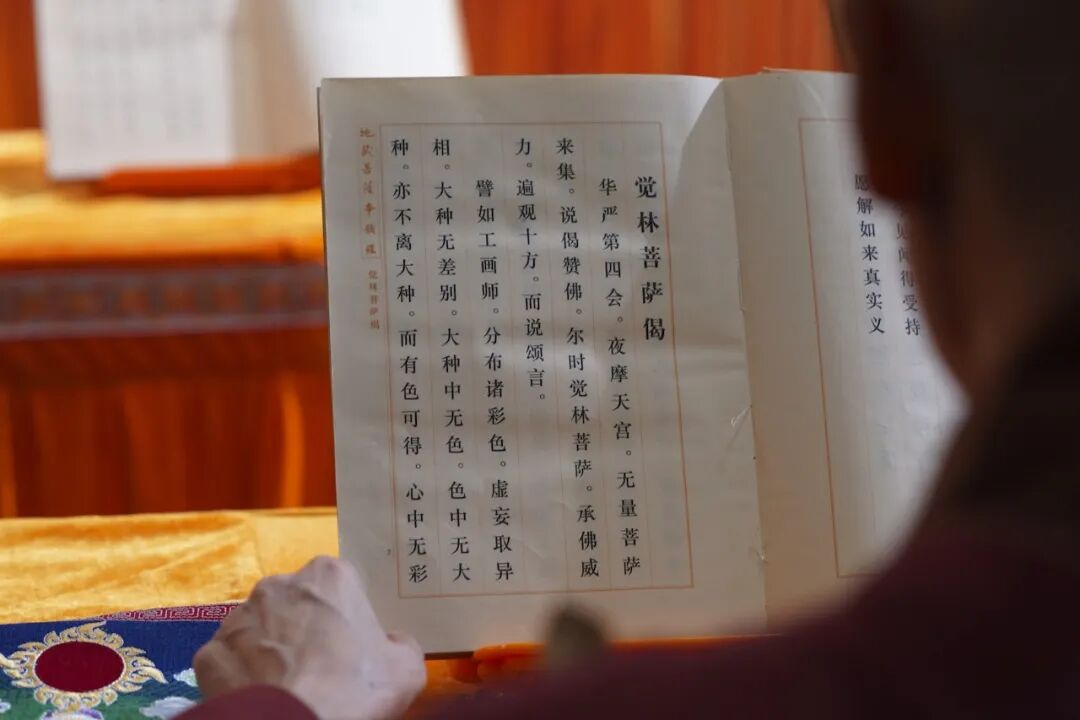 见闻得受持
愿解如来真实义
觉林菩萨偈
华严第四会。夜摩天宫。无量菩萨
来集。说偈赞佛。尔时觉林菩萨。承佛威
力。遍观十方。而说颂言。
譬如工画师。分布诸彩色。虚妄取异
相。大种无差别。大种中无色。色中无大
种。亦不离大种。而有色可得。心中无彩
地藏菩薩本願經
觉林菩萨偈